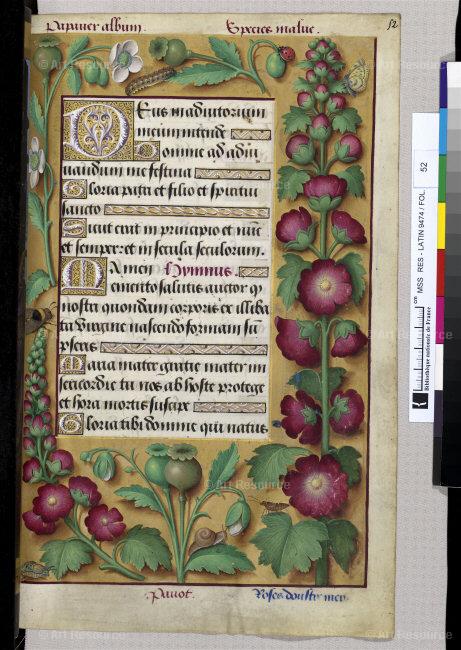 Papauer album.
Species malue.
52
Deus in adiutorium
meum intende
Domine ad adiu
uandum me festina
Gloria patri et filio et spiritui
sancto
Sicut erat in principio et nūc
et semper: et in secula seculorum.
Amen Hymnus.
Memento salutis auctor q
nostri quondam corporis ex illiba
ta virgine nascendo formam sū
pseris
Maria mater gratie mater mi
sericordie tu nos ab hoste protege
et hora mortis suscipe
Gloria tibi domine qui natus
Pauot.
Roses doultre mer
52
MSS RES - LATIN 9474 / FOL.
cm
Bibliothèque nationale de France
© Art Resource
© Art Resource
© Art Resource
© Art Resource
© Art Resource